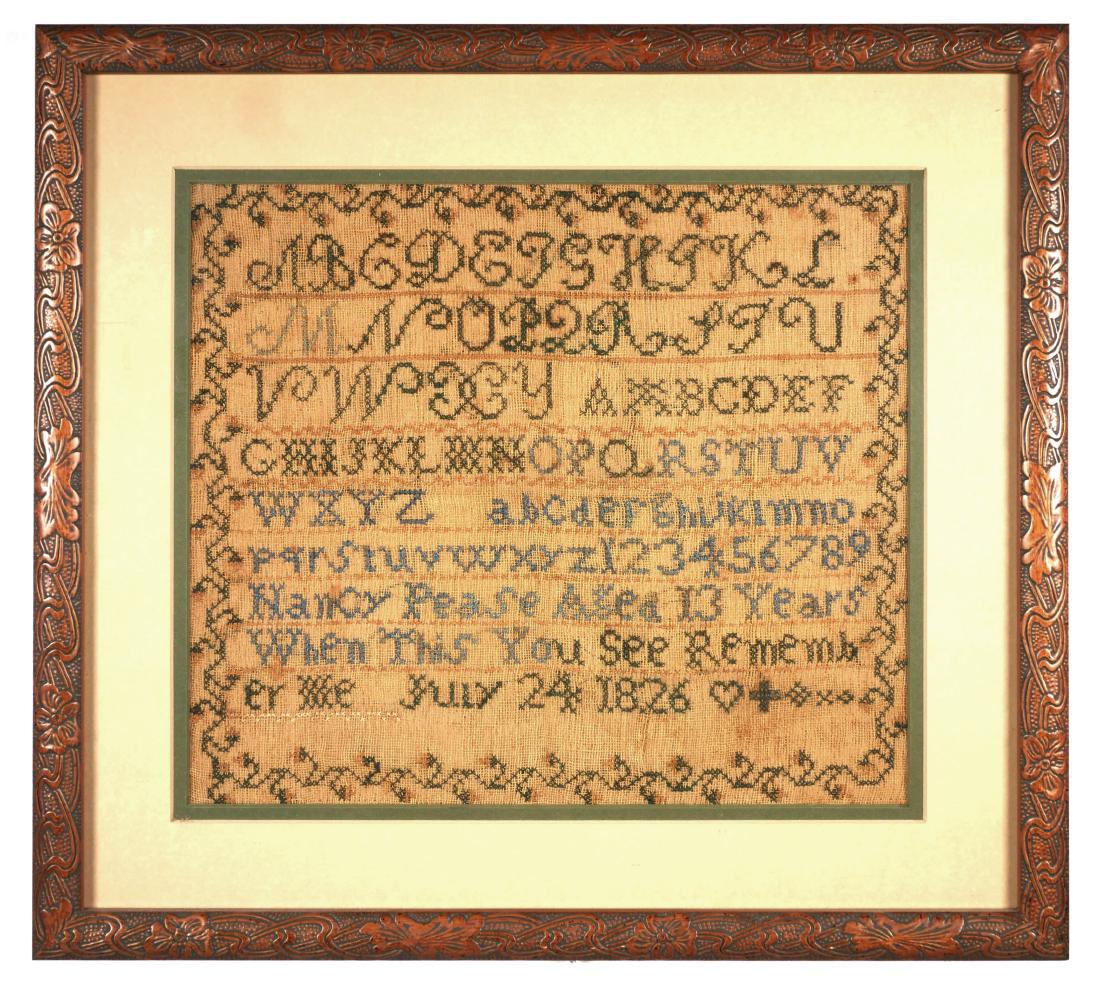 A B C D E F G H I K L
M N O P Q R S T U
V W X Y A B C D E F
G H I J K L M N O P Q R S T U V
W X Y Z a b c d e f g h i j k l m n o
p q r s t u v w x y z 1 2 3 4 5 6 7 8 9
Nancy Pease Aged 13 Years
When This You See Rememb
er Me July 24 1826